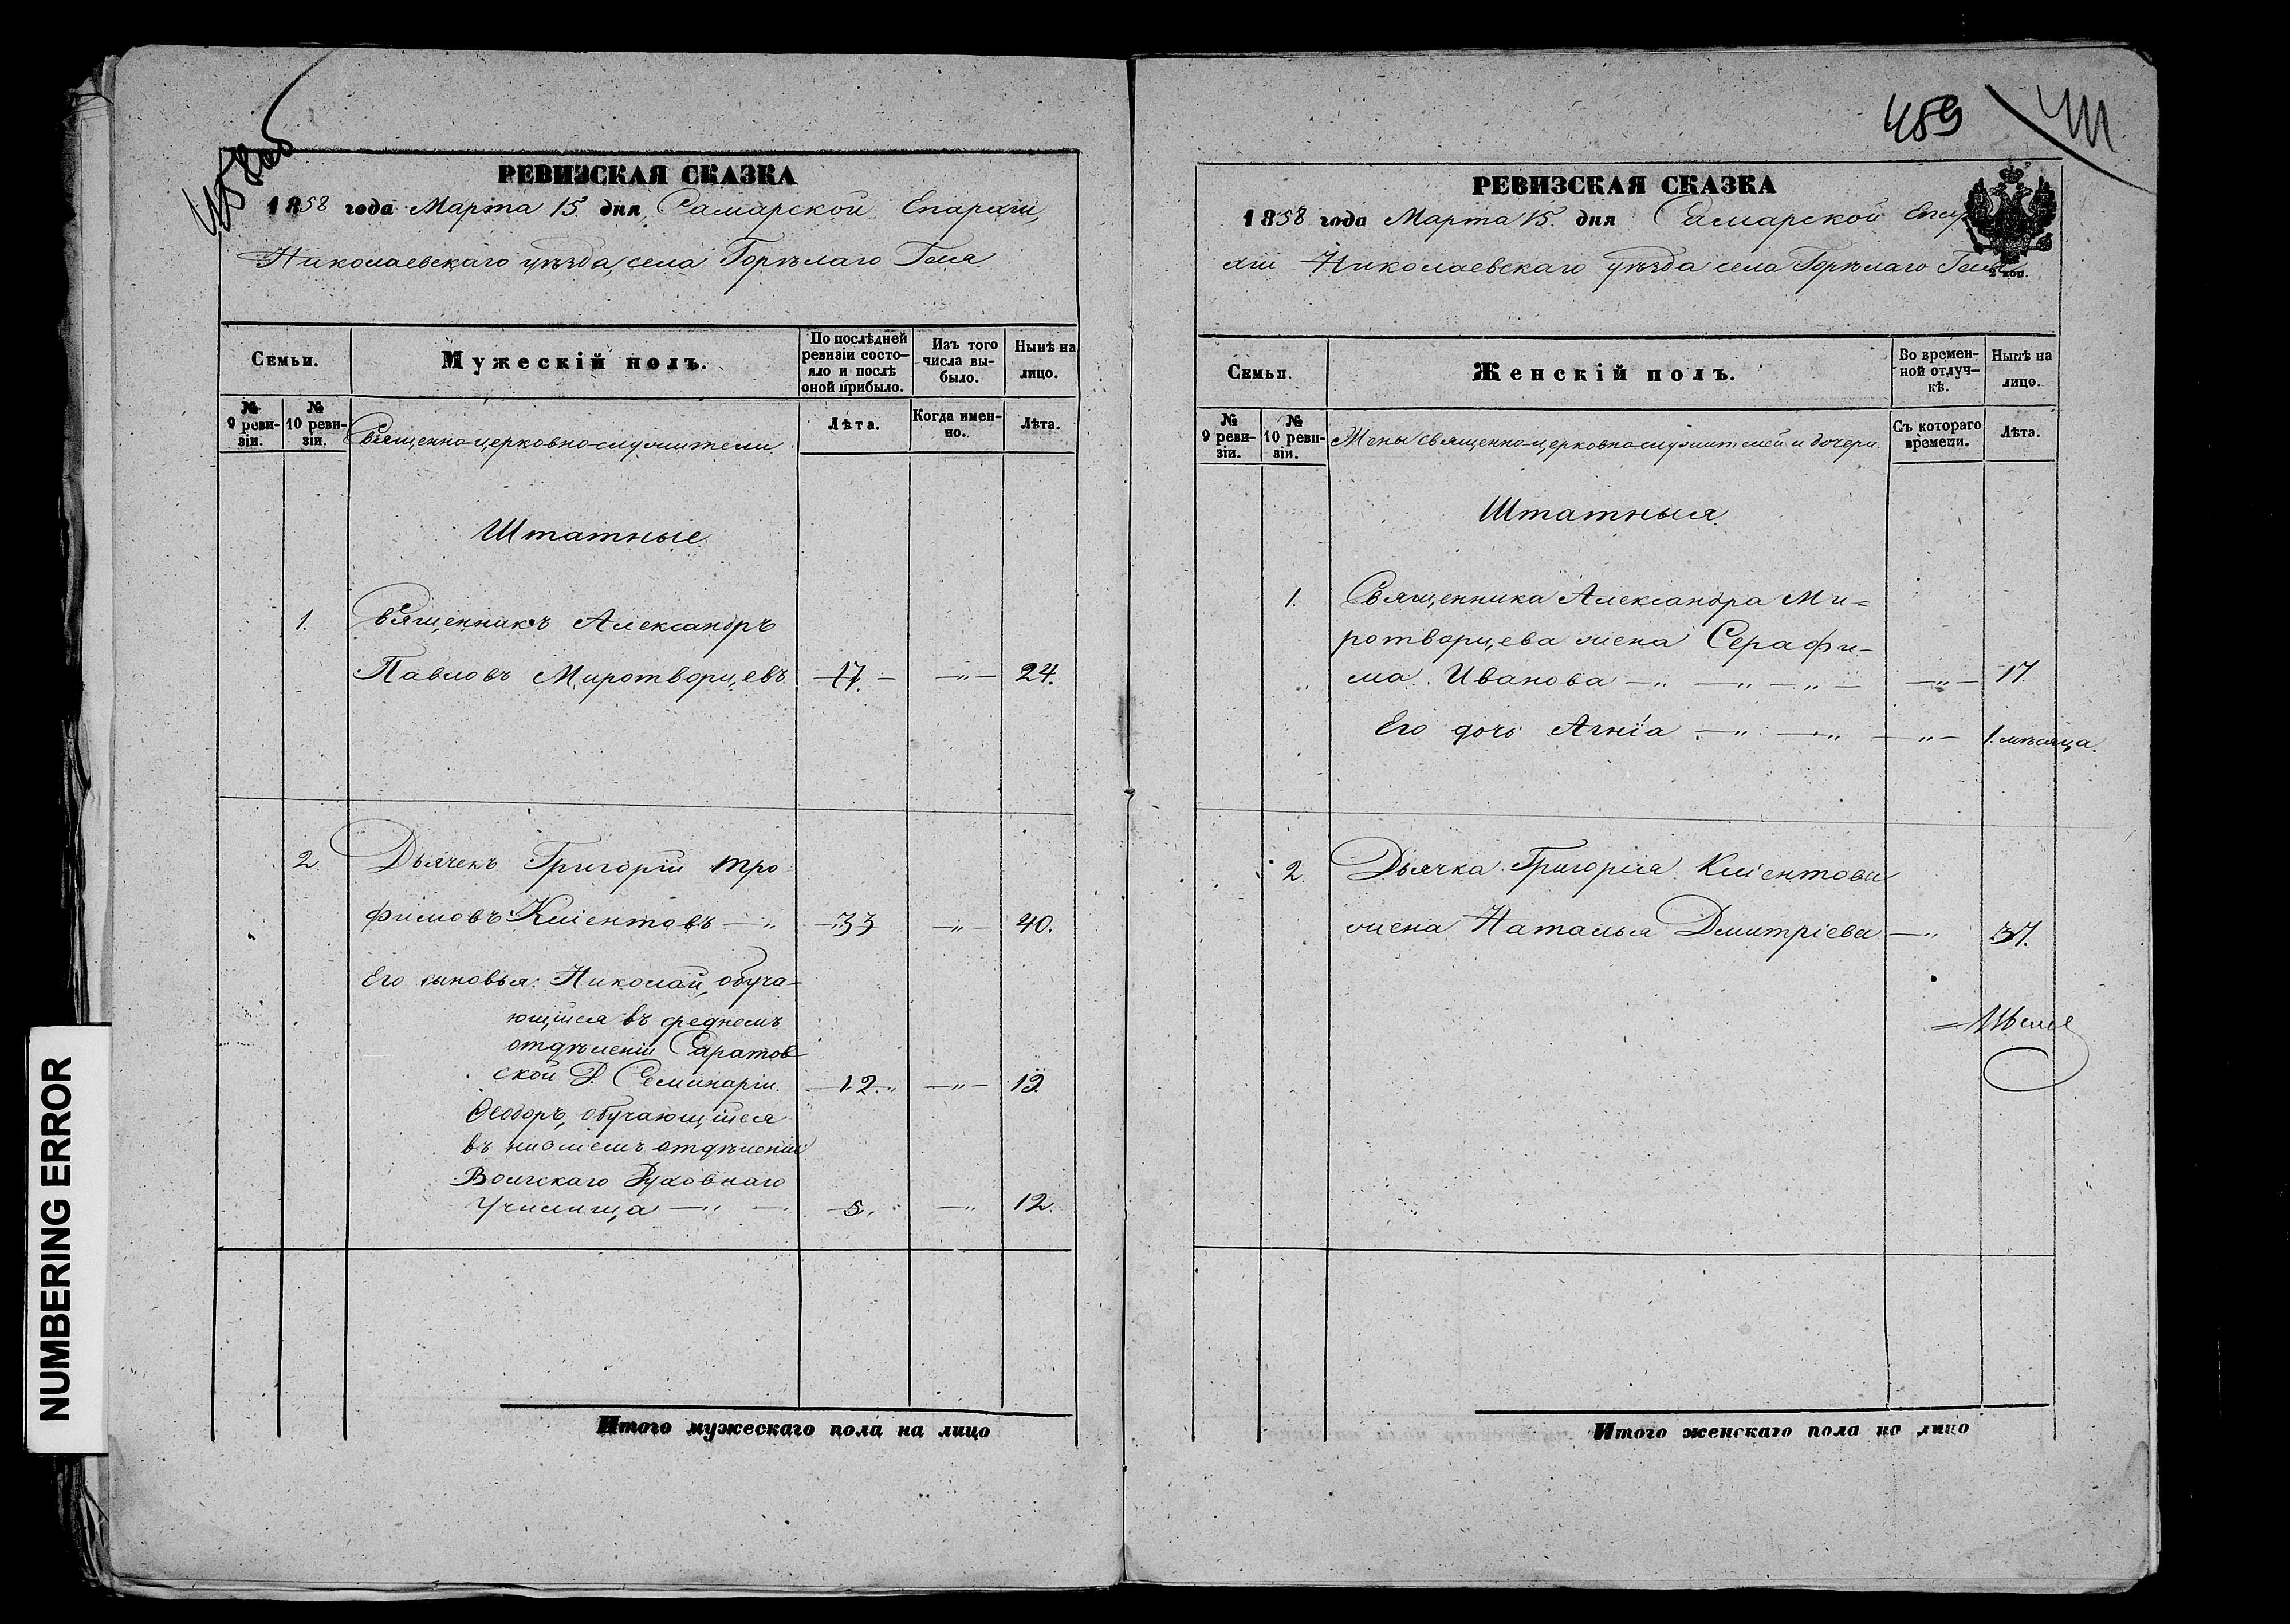 NUMBERING ERROR
РЕВИЗСКАЯ СКАЗКА
1858 года Марта 15 дня, Самарской Епархіи,
Николаевскаго уѣзда, села Горѣлаго Гая
Семьи.
Мужескій полъ.
По послѣдней
ревизіи состо-
яло и послѣ
оной прибыло.
Изъ того
числа вы-
было.
Нынѣ на
лицо.
№
9 реви-
зіи.
№
10 реви-
зіи.
Священно-церковно-служители
Лѣта.
Когда имен-
но.
Лѣта.
Штатные
1. Священникъ Александръ
Павловъ Миротворцевъ 17. — „ — 24.
2. Дьячекъ Григорій Тро
фимовъ Кліентовъ — „ 33 — „ — 40.
Его сыновья: Николай, обуча-
ющійся въ среднемъ
отдѣленіи Саратов
ской Д. Семинаріи. 12 — „ — 19.
Ѳеодоръ, обучающійся
въ низшемъ отдѣленіи
Вольскаго Духовнаго
Училища — „ — 5. — „ 12.
Итого мужескаго пола на лицо
459
РЕВИЗСКАЯ СКАЗКА
1858 года Марта 15. дня Самарской Епар
хіи Николаевскаго уѣзда села Горѣлаго Гая
2 коп.
Семьи.
Женскій полъ.
Во времен-
ной отлуч-
кѣ.
Нынѣ на
лицо.
№
9 реви-
зіи.
№
10 реви-
зіи.
Жены священно-церковно-служителей и дочери.
Съ котораго
времени.
Лѣта.
Штатныя
1. Священника Александра Ми=
ротворцева жена Серафи-
ма Иванова — „ — „ — „ — — „ — 17.
Его дочь Агнія — „ — „ — „ — 1. мѣсяца.
2. Дьячка Григорія Кліентова
жена Наталья Дмитріева — „ 37.
Итого женскаго пола на лицо